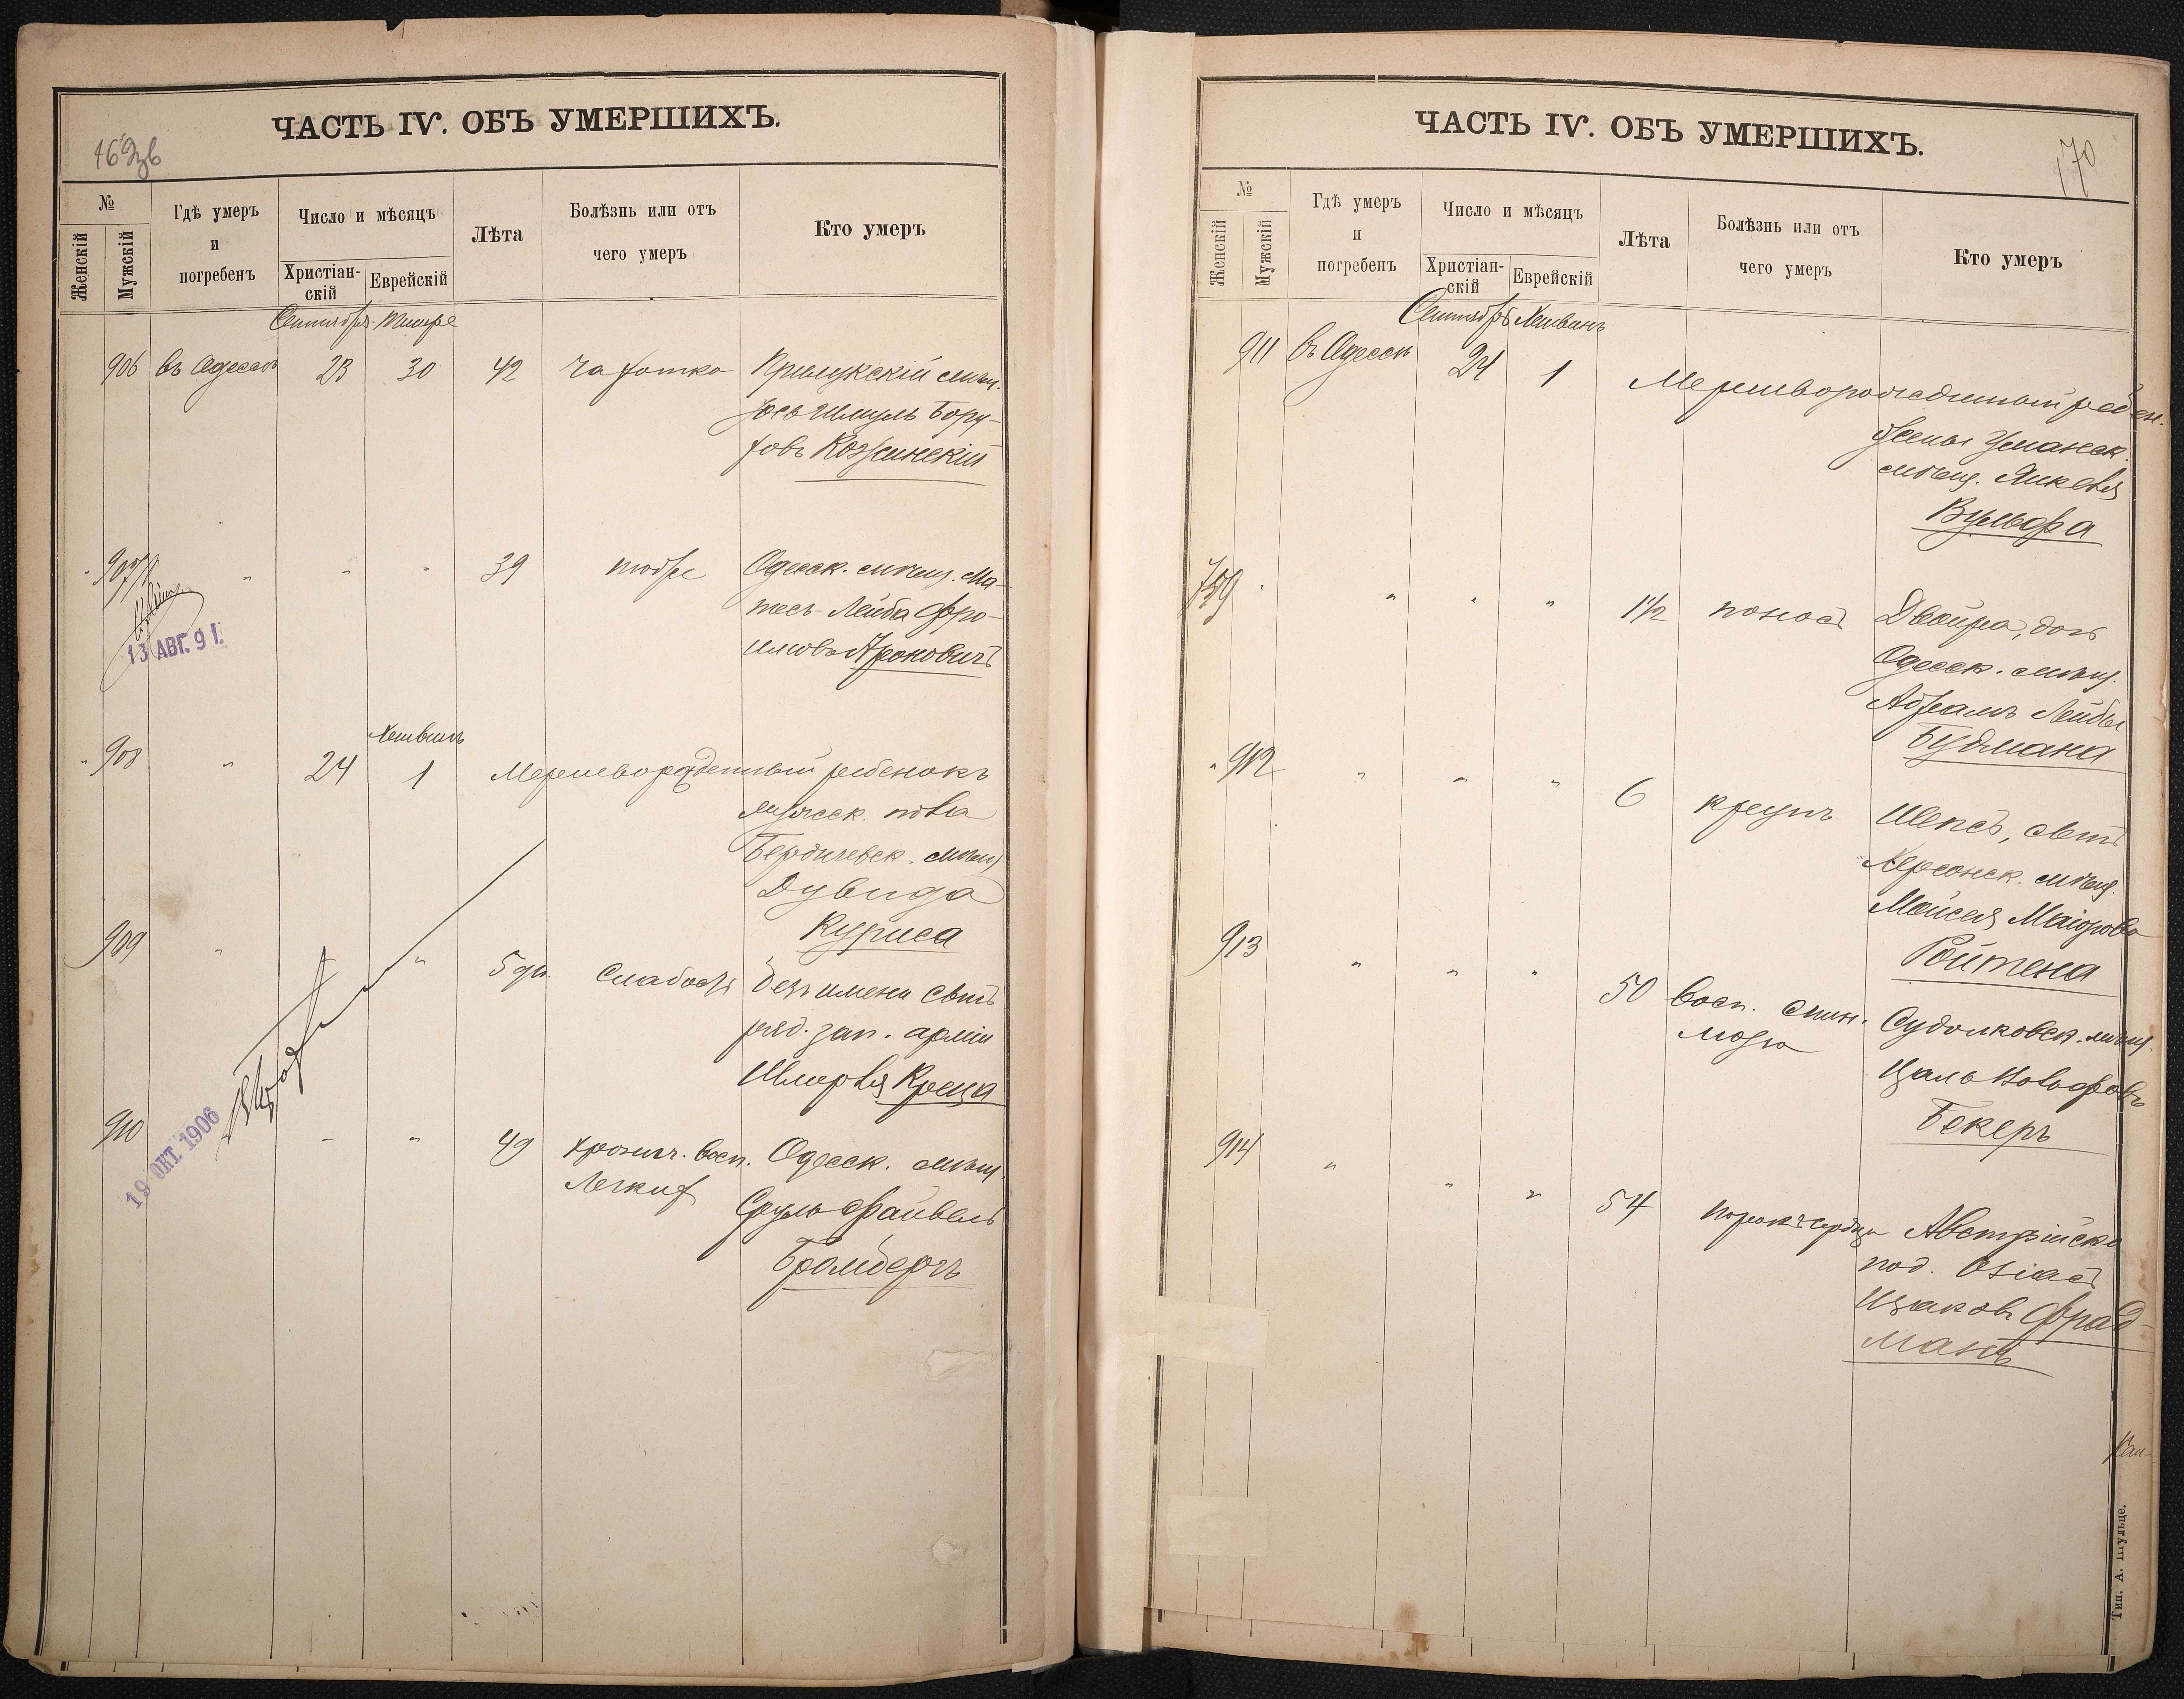 ЧАСТЬ IV. ОБЪ УМЕРШИХЪ.
№
Женскій
Мужскій
Гдѣ умеръ
и
погребенъ
Число и мѣсяцъ
Христіан-
скій
Еврейскій
Лѣта
Болѣзнь или отъ
чего умеръ
Кто умеръ
Сентября Тишре
906 въ Одессѣ 23 30 42 Чахотка Прилукскій мѣщ.
Іось Шмуль Бору-
ховъ Козжинскій
907 " " " 39 тоже Одесск. мѣщ. Ма-
тесъ-Лейба Фро-
имовъ Ароновичъ
13 АВГ. 91.
Хешвинъ
908 " 24 1 Мертворожденный ребенокъ
мужеск. пола
Бердичевск. мѣщ.
Дувида
Куриса
909 " " 5 дн. Слабость безъ имени сынъ
ряд. зап. арміи
Шмерля Креца
910 " " 49 хронич. восп. Одесск. мѣщ.
Легкихъ Сруль Файвель
Бромбергъ
19 ОКТ. 1906
ЧАСТЬ IV. ОБЪ УМЕРШИХЪ.
170
№
Женскій
Мужскій
Гдѣ умеръ
и
погребенъ
Число и мѣсяцъ
Христіан-
скій
Еврейскій
Лѣта
Болѣзнь или отъ
чего умеръ
Кто умеръ
Сентябрь Хешванъ
911 въ Одессѣ 24 1 Мертворожденный ребен.
жены Уманск.
мѣщ. Янкеля
Вульфа
759 " " " " 1½ поносъ Двойра, дочь
Одесск. мѣщ.
Абрамъ Лейбы
Будмана
" 912 " " " 6 крупъ Шепсъ, сынъ
Херсонск. мѣщ.
Мойсея Маіорова
Ройтена
913 " " " 50 Восп. спин. Судолковск. мѣщ.
мозга Цаль
Бекеръ
914 " " " 54 порокъ сердца Австрійск.
под. Озіасъ
Ицаковъ Фрад-
манъ
Тип. А. Шульце.